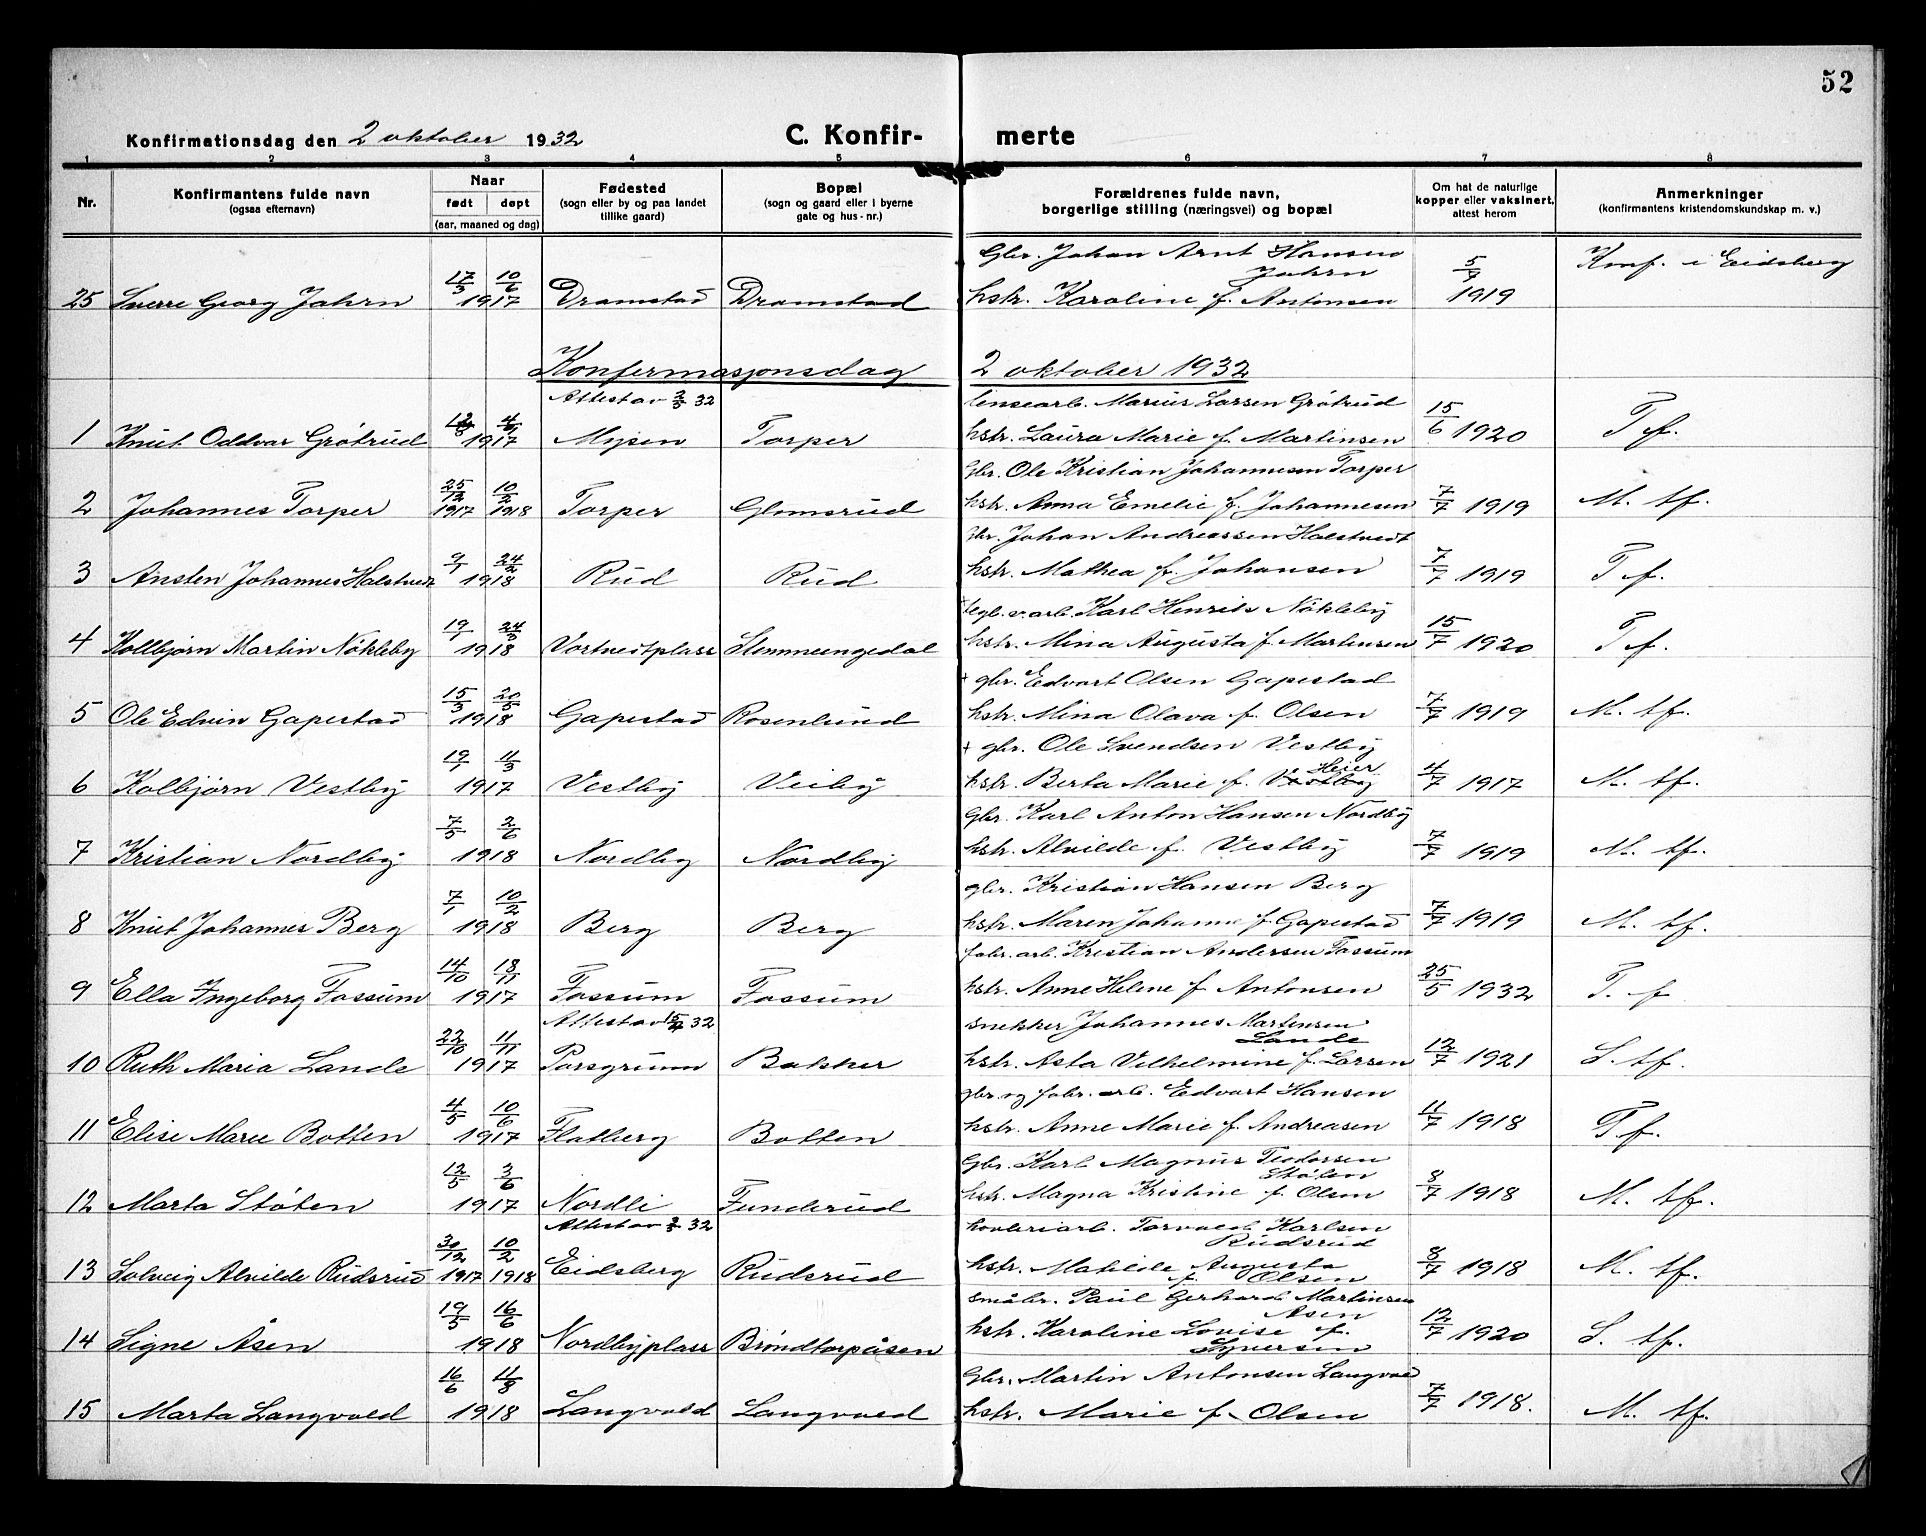 52
Konfirmationsdag den 2 oktober 1932
C. Konfirmerte
1 2 3 4 5 6 7 8
Nr.
Konfirmantens fulde navn
(ogsaa efternavn)
Naar
født døpt
(aar, maaned og dag)
Fødested
(sogn eller by og paa landet
tillike gaard)
Bopæl
(sogn og gaard eller i byerne
gate og hus-nr.)
Forældrenes fulde navn,
borgerlige stilling (næringsvei) og bopæl
Om hat de naturlige
kopper eller vaksinert,
attest herom
Anmerkninger
(konfirmantens kristendomskundskap m. v.)
Gbr. Johan Arnt Hansen
Jahrn
25 Sverre Georg Jahrn 17/3 10/6 1917 Dramstad Dramstad hstr. Karoline f. Antonsen 5/9 1919 Konf. i Eidsberg
Konfermasjonsdag 2 oktober 1932
Attest av 2/3 32 lensearb. Marius Larsen Grøtrud
1 Knut Oddvar Grøtrud 1917 Mysen Torper hstr. Laura Marie f. Martinsen 15/6 1920 T f.
Gbr. Ole Kristian Johannesen Torper
2 Johannes Torper 25/12 1917 10/2 1918 Torper Glomsrud hstr. Anna Emelie f. Johannesen 7/7 1919 M. tf.
Gbr. Johan Andreassen Halstvedt
3 Ansten Johannes Halstvedt 9/1 24/2 1918 Rud Rud hstr. Mathea f. Johansen 7/7 1919 T f.
Karl Henrik Nøkleby
4 Kolbjørn Martin Nøkleby 19/1 24/3 1918 Vortvedtplass Stemmeengedal hstr. Mina Augusta f. Martinsen 15/7 1920 T f.
+ gbr. Edvart Olsen Gapestad
5 Ole Edvin Gapestad 15/3 20/5 1918 Gapestad Rosenlund hstr. Mina Olava f. Olsen 7/7 1919 M. tf.
+ gbr. Ole Svendsen Vestby
6 Kolbjørn Vestby 19/1 11/3 1917 Vestby Veiby hstr. Berta Marie f. Vestby Heier 4/7 1917 M. tf.
Gbr. Karl Anton Hansen Nordby
7 Kristian Nordby 7/5 2/6 1918 Nordby Nordby hstr. Alvilde f. Vestby 7/7 1919 M. tf.
gbr. Kristian Hansen Berg
8 Knut Johannes Berg 7/1 10/2 1918 Berg Berg hstr. Maren Johanne f. Gapestad 7/7 1919 M. tf.
fabr. arb. Kristian Andersen Fossum
9 Ella Ingeborg Fossum 14/10 18/11 1917 Fossum Fossum hstr. Anne Helene f Antonsen 25/5 1932 T. f
Attest av 32 snekker Johannes Martinsen
Lande
10 Ruth Maria Lande 22/10 11/11 1917 Porsgrunn Bakker hstr. Asta Vilhelmine f. Larsen 12/7 1921 S. tf.
gbr. og fabr. arb. Edvart Hansen
11 Elise Marie Botten 4/5 10/6 1917 Flatberg Botten hstr. Anne Marie f. Andreasen 11/7 1918 T f.
Gbr. Karl Magnus Teodorsen
Støten
12 Marta Støten 12/5 3/6 1917 Nordli Funderud hstr. Magna Kristine f. Olsen 8/7 1918 M. tf.
Attest av 32 Torvald Karlsen
Rudsrud
13 Solveig Alvilde Rudsrud 30/12 1917 10/2 1918 Eidsberg Rudsrud hstr. Matilde Augusta
f. Olsen 8/7 1918 M. tf.
småbr. Paul Gerhard Martinsen
Åsen
14 Signe Åsen 19/5 16/6 1918 Nordbyplass Brøndtorpåsen hstr. Karoline Lovise f.
Syversen 12/7 1920 S. tf.
Gbr. Martin Antonsen Langvald
15 Marta Langvald 16/6 11/8 1918 Langvald Langvald hstr. Marie f. Olsen 7/7 1918. M. tf.